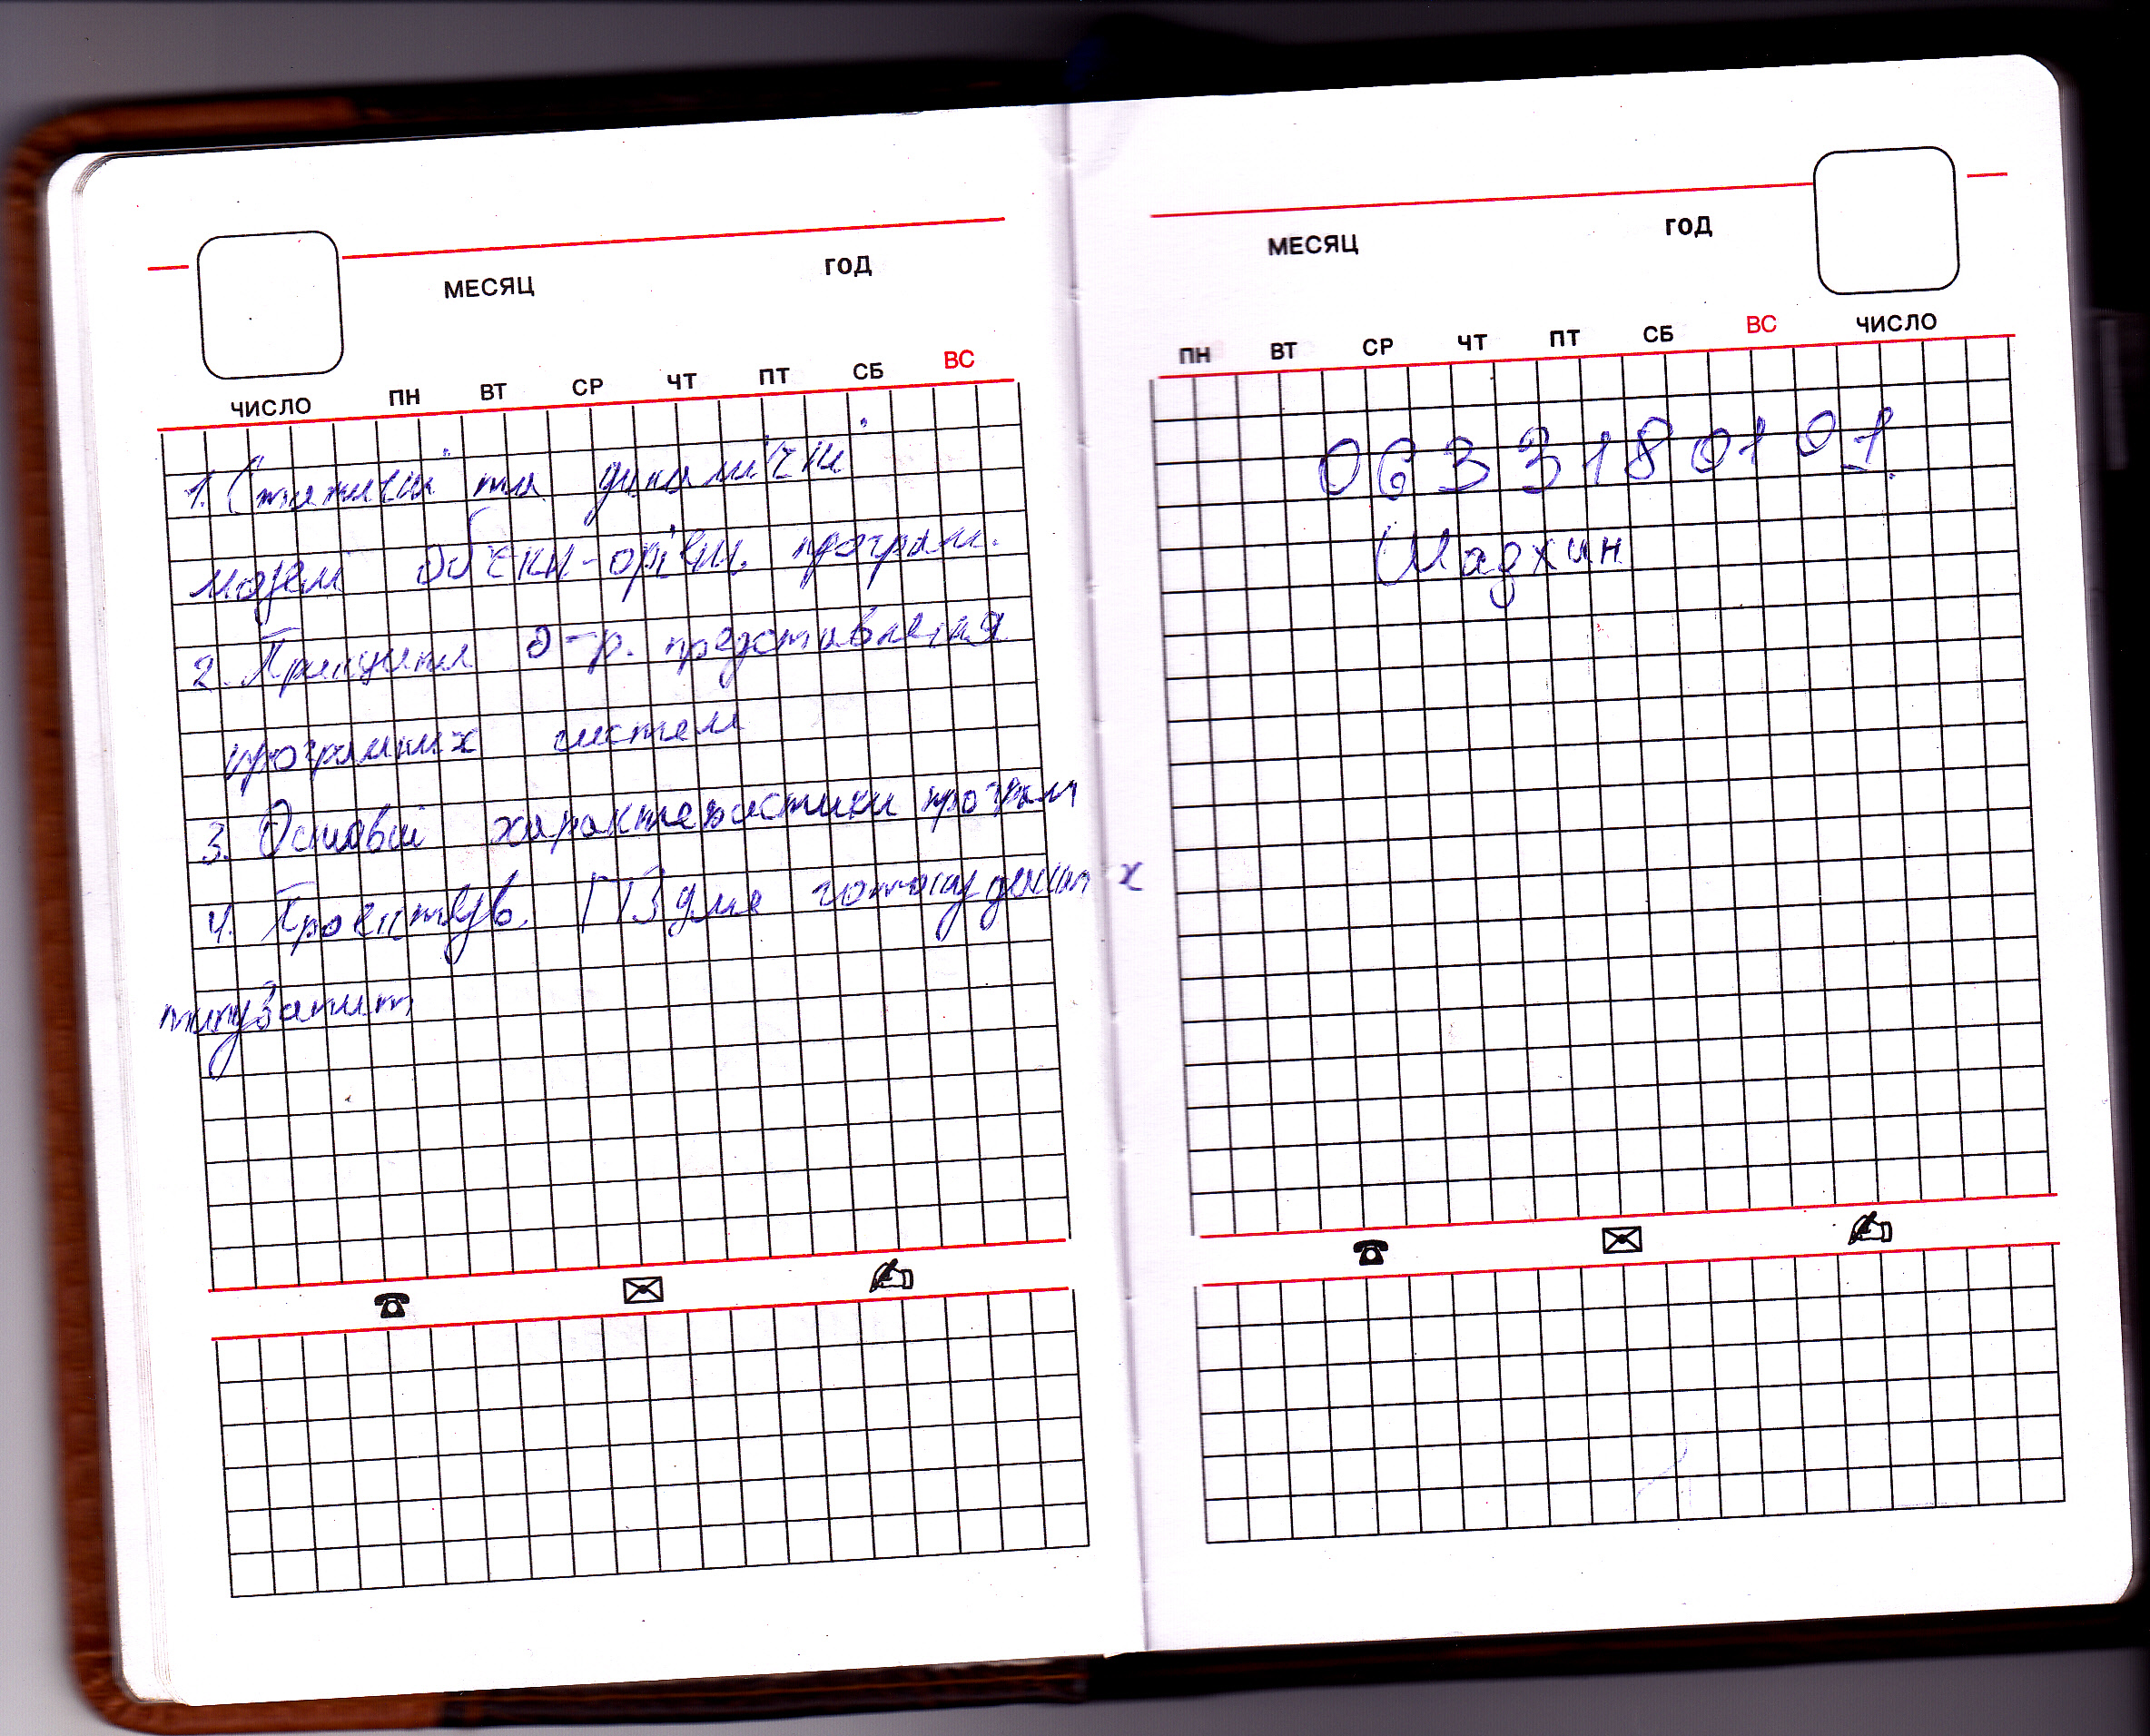 МЕСЯЦ ГОД
ЧИСЛО ПН ВТ СР ЧТ ПТ СБ ВС
1. Статичні та динамічні
моделі об'єкт-орієнт. програм.
2. Принципи о-р. представлення
програмних систем
3. Основні характеристики програм
4. Проектув. ПЗ для
МЕСЯЦ ГОД
ПН ВТ СР ЧТ ПТ СБ ВС ЧИСЛО
063 318 01 01
Шадхин